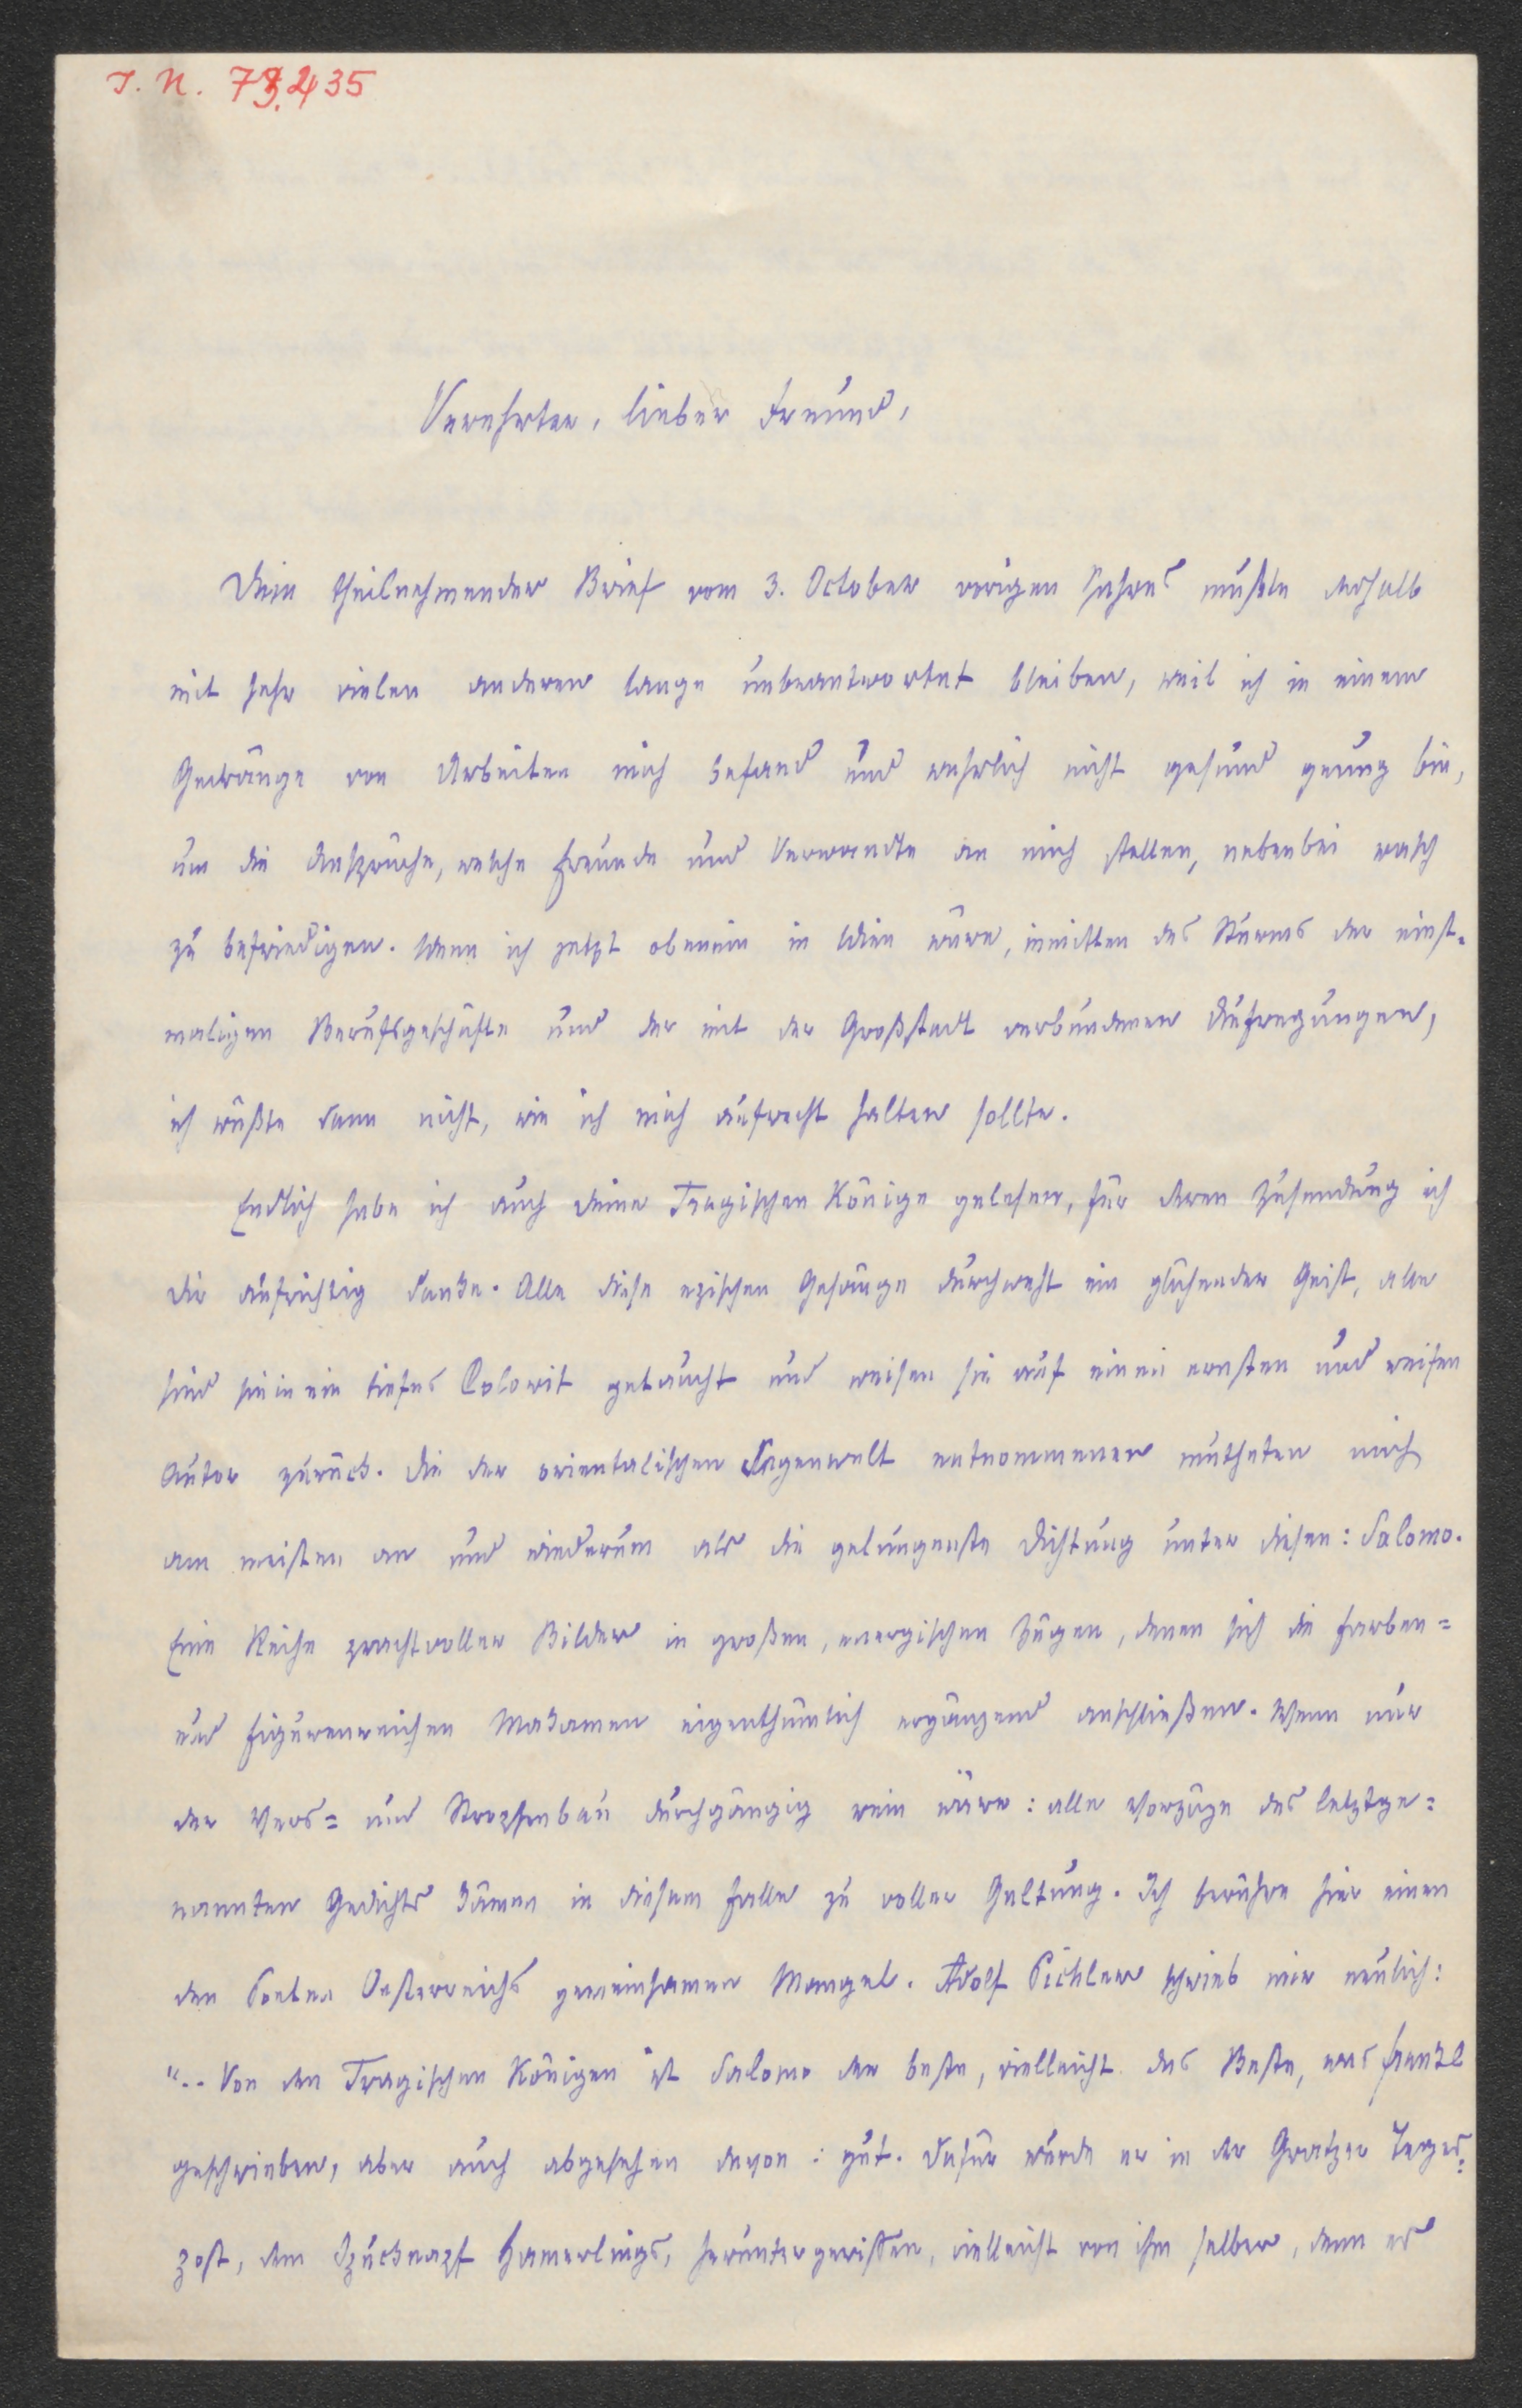 I. N. 73.435
Verehrter, lieber Freund,
Dein theilnehmender Brief vom 3. October vorigen Jahres mußte deshalb
mit sehr vielen anderen lange unbeantwortet bleiben, weil ich in einem
Gedränge von Arbeiten mich befand und wahrlich nicht gesund genug bin,
um die Ansprüche, welche Freunde und Verwandte an mich stellen, nebenbei rasch
zu befriedigen. Wenn ich jetzt obenein in Wien wäre, inmitten des Sturms der einst-
maligen Berufsgeschäfte und der mit der Großstadt verbundenen Aufregungen,
ich wüßte dann nicht, wie ich mich aufrecht halten sollte.
Endlich habe ich auch deine Tragischen Könige gelesen, für deren Zusendung ich
dir aufrichtig danke. Alle diese epischen Gesänge durchweht ein glühender Geist, alle
sind sie in ein tiefes Colorit getaucht und weisen sie auf einen ernsten und weisen
Autor zurück. Die der orientalischen Sagenwelt entnommenen mutheten mich
am meisten an und wiederum als die gelungenste Dichtung unter diesen: Salomo.
Eine Reihe prachtvoller Bilder in großen, energischen Zügen, denen sich die farben=
und figurenreichen Makamen eigenthümlich ergänzend anschließen. Wenn nur
der Vers= und Strophenbau durchgängig rein wäre: alle Vorzüge des letztge=
nannten Gedichts kämen in diesem Falle zu voller Geltung. Ich berühre hier einen
den Poeten Oesterreichs gemeinsamen Mangel. Adolf Pichler schrieb mir neulich:
".. Von den Tragischen Königen ist Salomo der beste, vielleicht das Beste, was Frankl
geschrieben, aber auch abgesehen davon: gut. Dafür wurde er in der Gratzer Tages=
post, dem Spucknapf Hamerlings, heruntergerissen, vielleicht von ihm selber, denn es